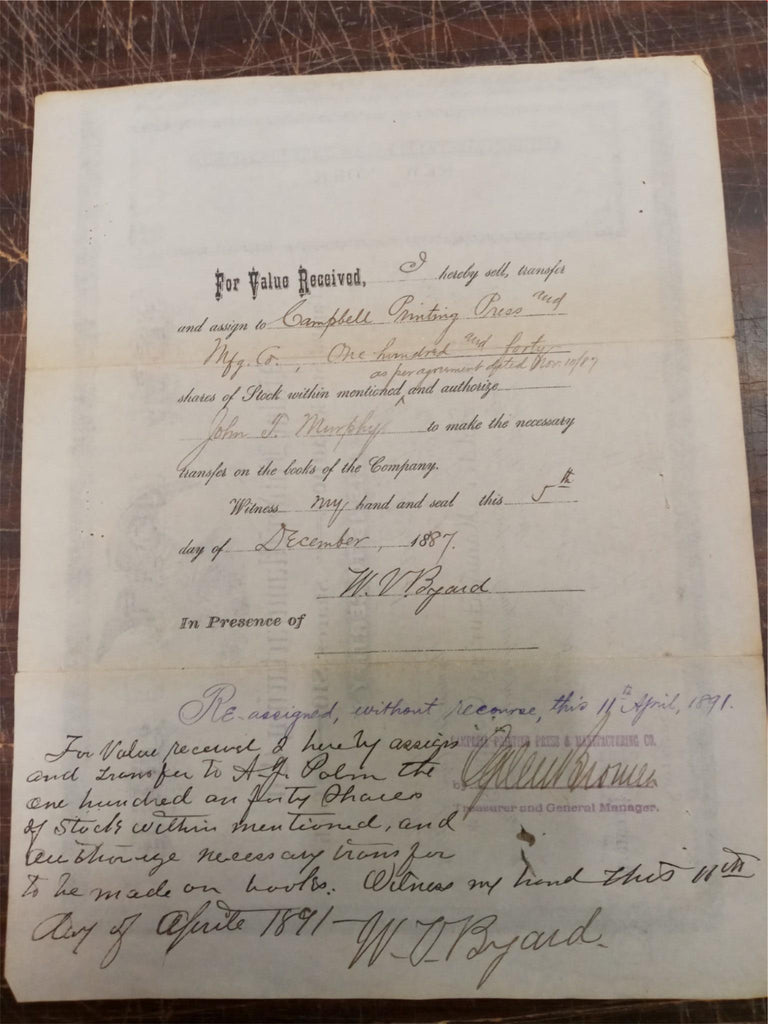 For Value Received, I hereby sell, transfer
and assign to Campbell Printing Press and
Mfg. Co., One hundred and forty
as per agreement dated Nov. 10/87
shares of Stock within mentioned ^ and authorize
John T. Murphy to make the necessary
transfer on the books of the Company.
Witness my hand and seal this 5th
day of December, 1887.
W. V. Byard
In Presence of
Re-assigned, without recourse, this 11th April, 1891.
CAMPBELL PRINTING PRESS & MANUFACTURING CO.
by
Treasurer and General Manager.
For Value received, I hereby assign
and transfer to A. J. Palm the
one hundred an forty Shares
of Stock within mentioned, and
authorize necessary transfer
to be made on books. Witness my hand this 11th
day of Aprile 1891 W. V. Byard.